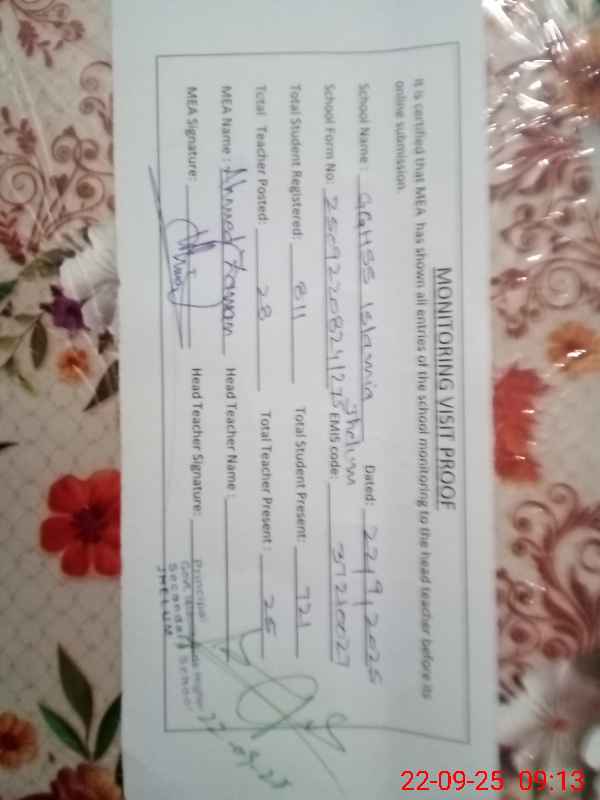 MONITORING VISIT PROOF
It is certified that MEA has shown all entries of the school monitoring to the head teacher before its
online submission.
School Name: GGHSS Islamia Jhelum Dated: 22/9/2025
School Form No: EMIS code: 37210027
Total Student Registered: 811 Total Student Present: 721
Total Teacher Posted: 28 Total Teacher Present: 25
MEA Name: Ahmed Head Teacher Name:
MEA Signature: Head Teacher Signature:
Principal
Govt. Higher
Secondary School
JHELUM
22-09-25
22-09-25 09:13